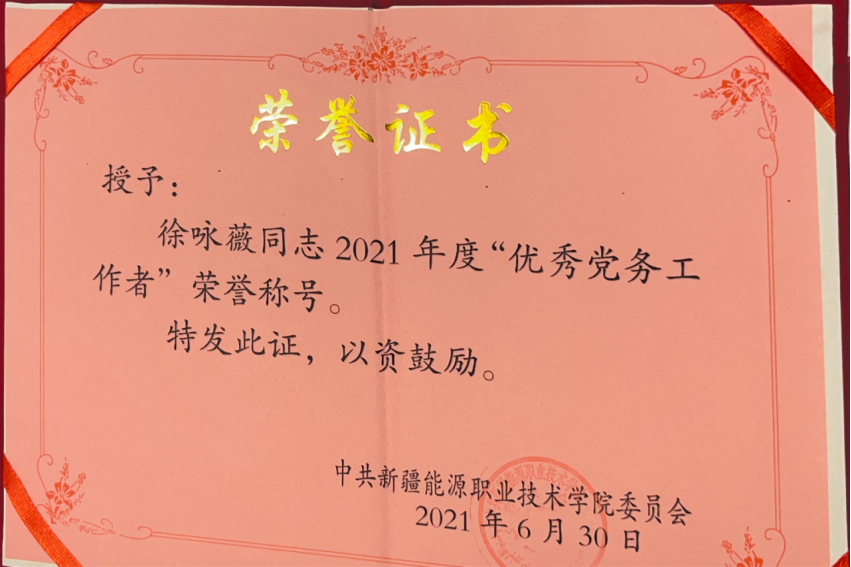 荣誉证书
授予：
徐咏薇同志2021年度“优秀党务工
作者”荣誉称号。
特发此证，以资鼓励。
中共新疆能源职业技术学院委员会
2021年6月30日